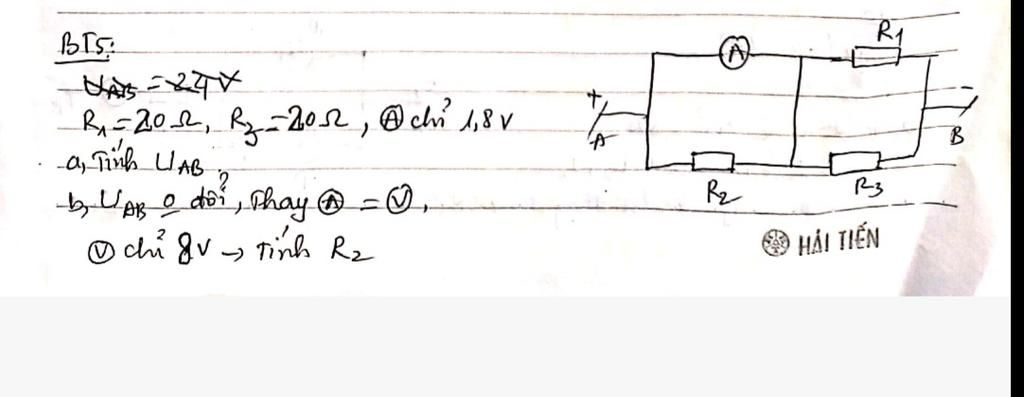 BT5:
U_AB = 24V
R₁ = 20 Ω, R₃ = 20 Ω, Ⓐ chỉ 1,8 V
a, Tính U_AB ?
b, U_AB o đổi, Thay Ⓐ = Ⓥ,
Ⓥ chỉ 8V → Tính R₂
A R₁
+ -
A B
R₂ R₃
HẢI TIẾN